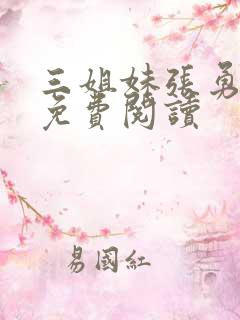 三姐妹张勇
免費閱讀
易國紅